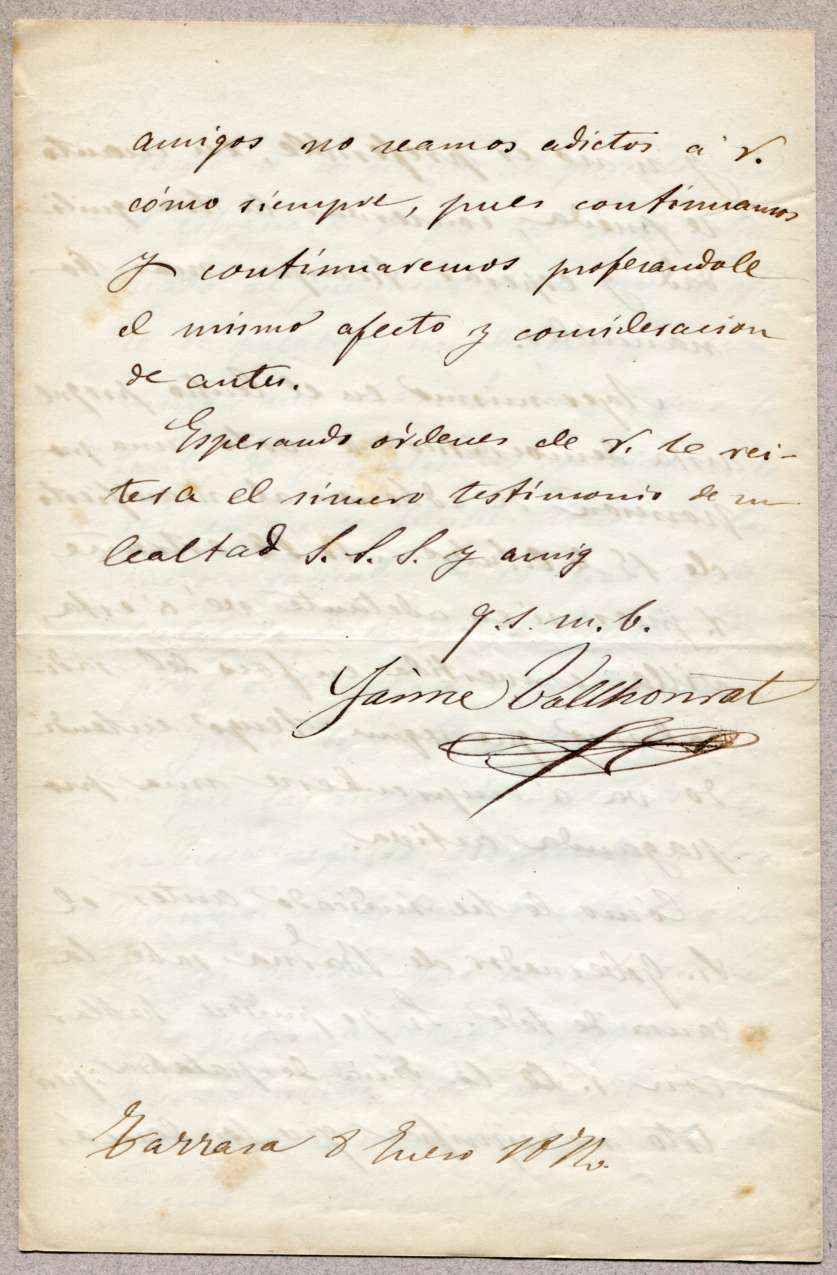 amigos no seamos adictos á V.
cómo siempre, pues continuamos
y continuaremos profesandole
el mismo afecto y consideracion
de antes.
Esperando órdenes de V. le rei-
tera el sincero testimonio de su
lealtad S. S. S. y amig
q. s. m. b.
Jaime Vallhonrat
Tarrasa 8 Enero